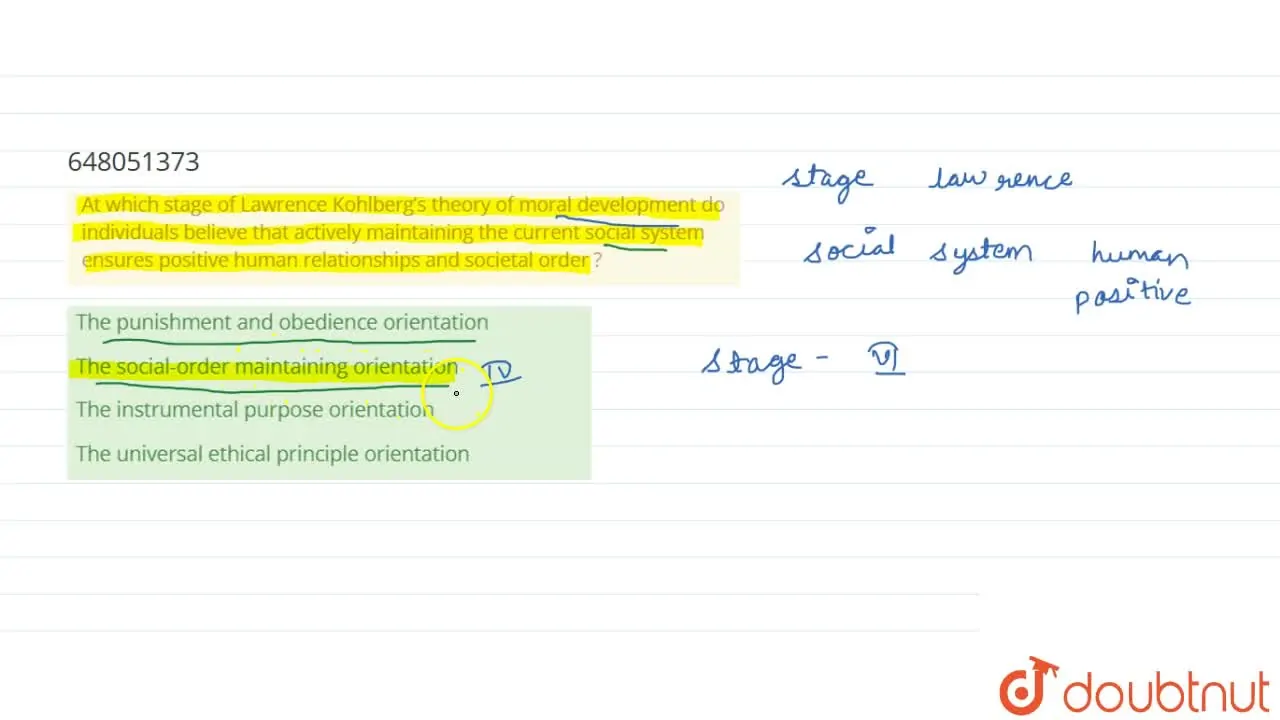 648051373
At which stage of Lawrence Kohlberg's theory of moral development do
individuals believe that actively maintaining the current social system
ensures positive human relationships and societal order ?
The punishment and obedience orientation
The social-order maintaining orientation IV
The instrumental purpose orientation
The universal ethical principle orientation
stage lawrence
social system human
positive
stage - VI
doubtnut